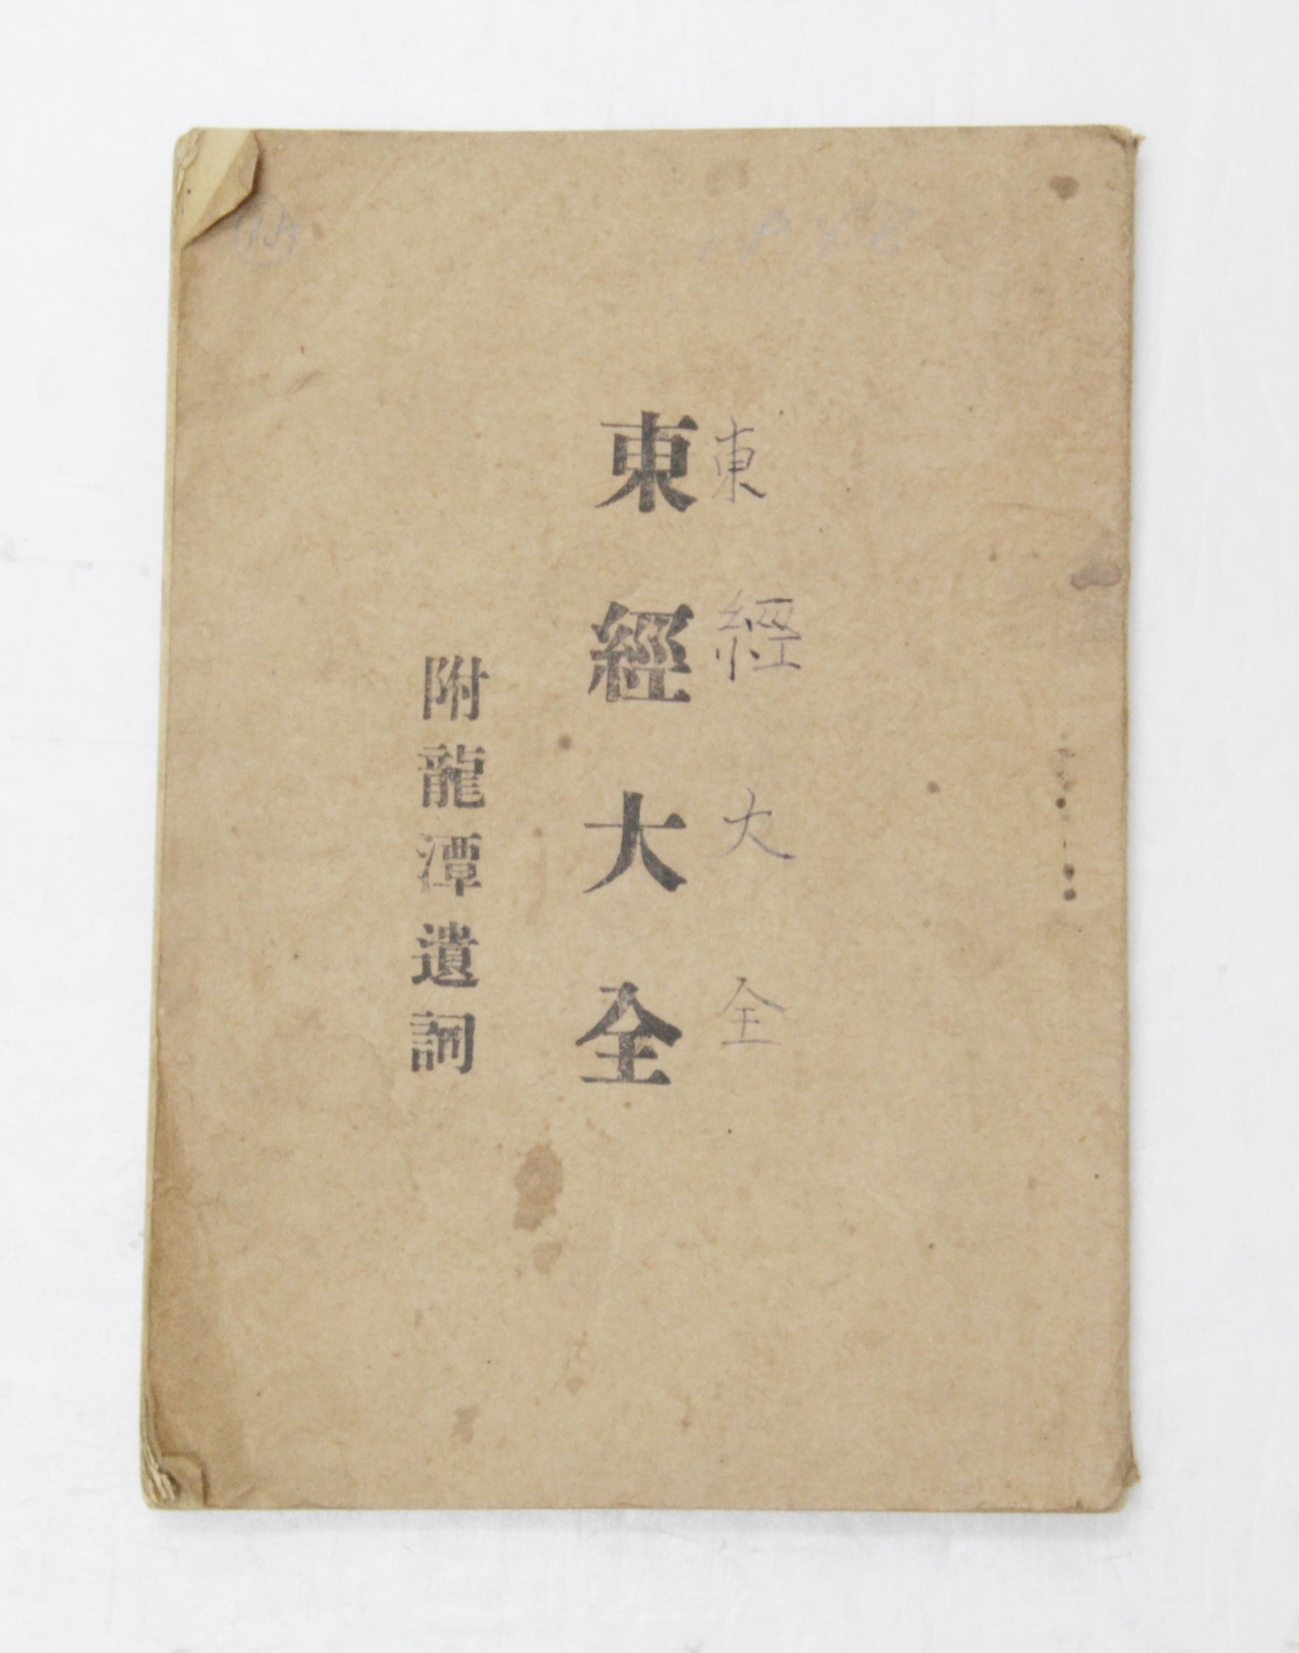 東經大全
東經大全
附龍潭遺詞